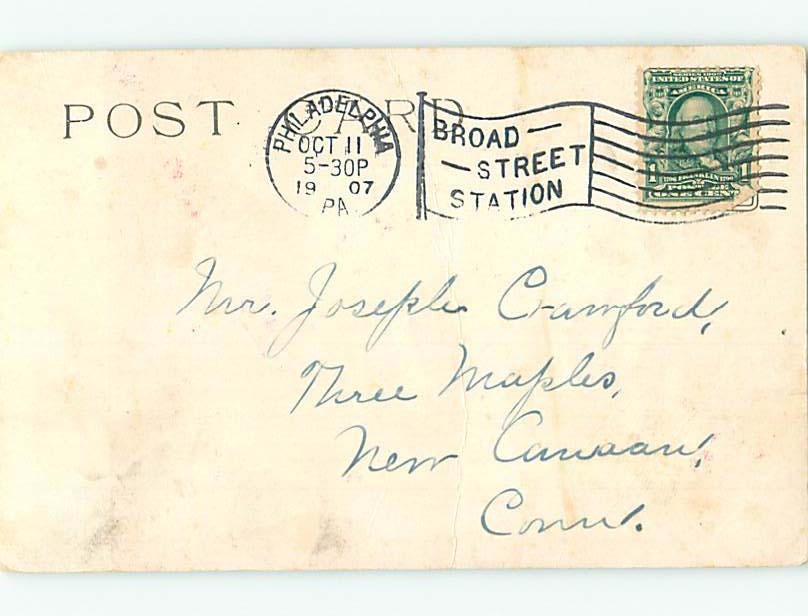 POST CARD
PHILADELPHIA
OCT 11
5-30P
19 07
PA.
BROAD—
—STREET
STATION
SERIES 1902
UNITED STATES OF
AMERICA
1 FRANKLIN 1
ONE CENT
Mr. Joseph Crawford,
Three Maples,
New Canaan,
Conn.